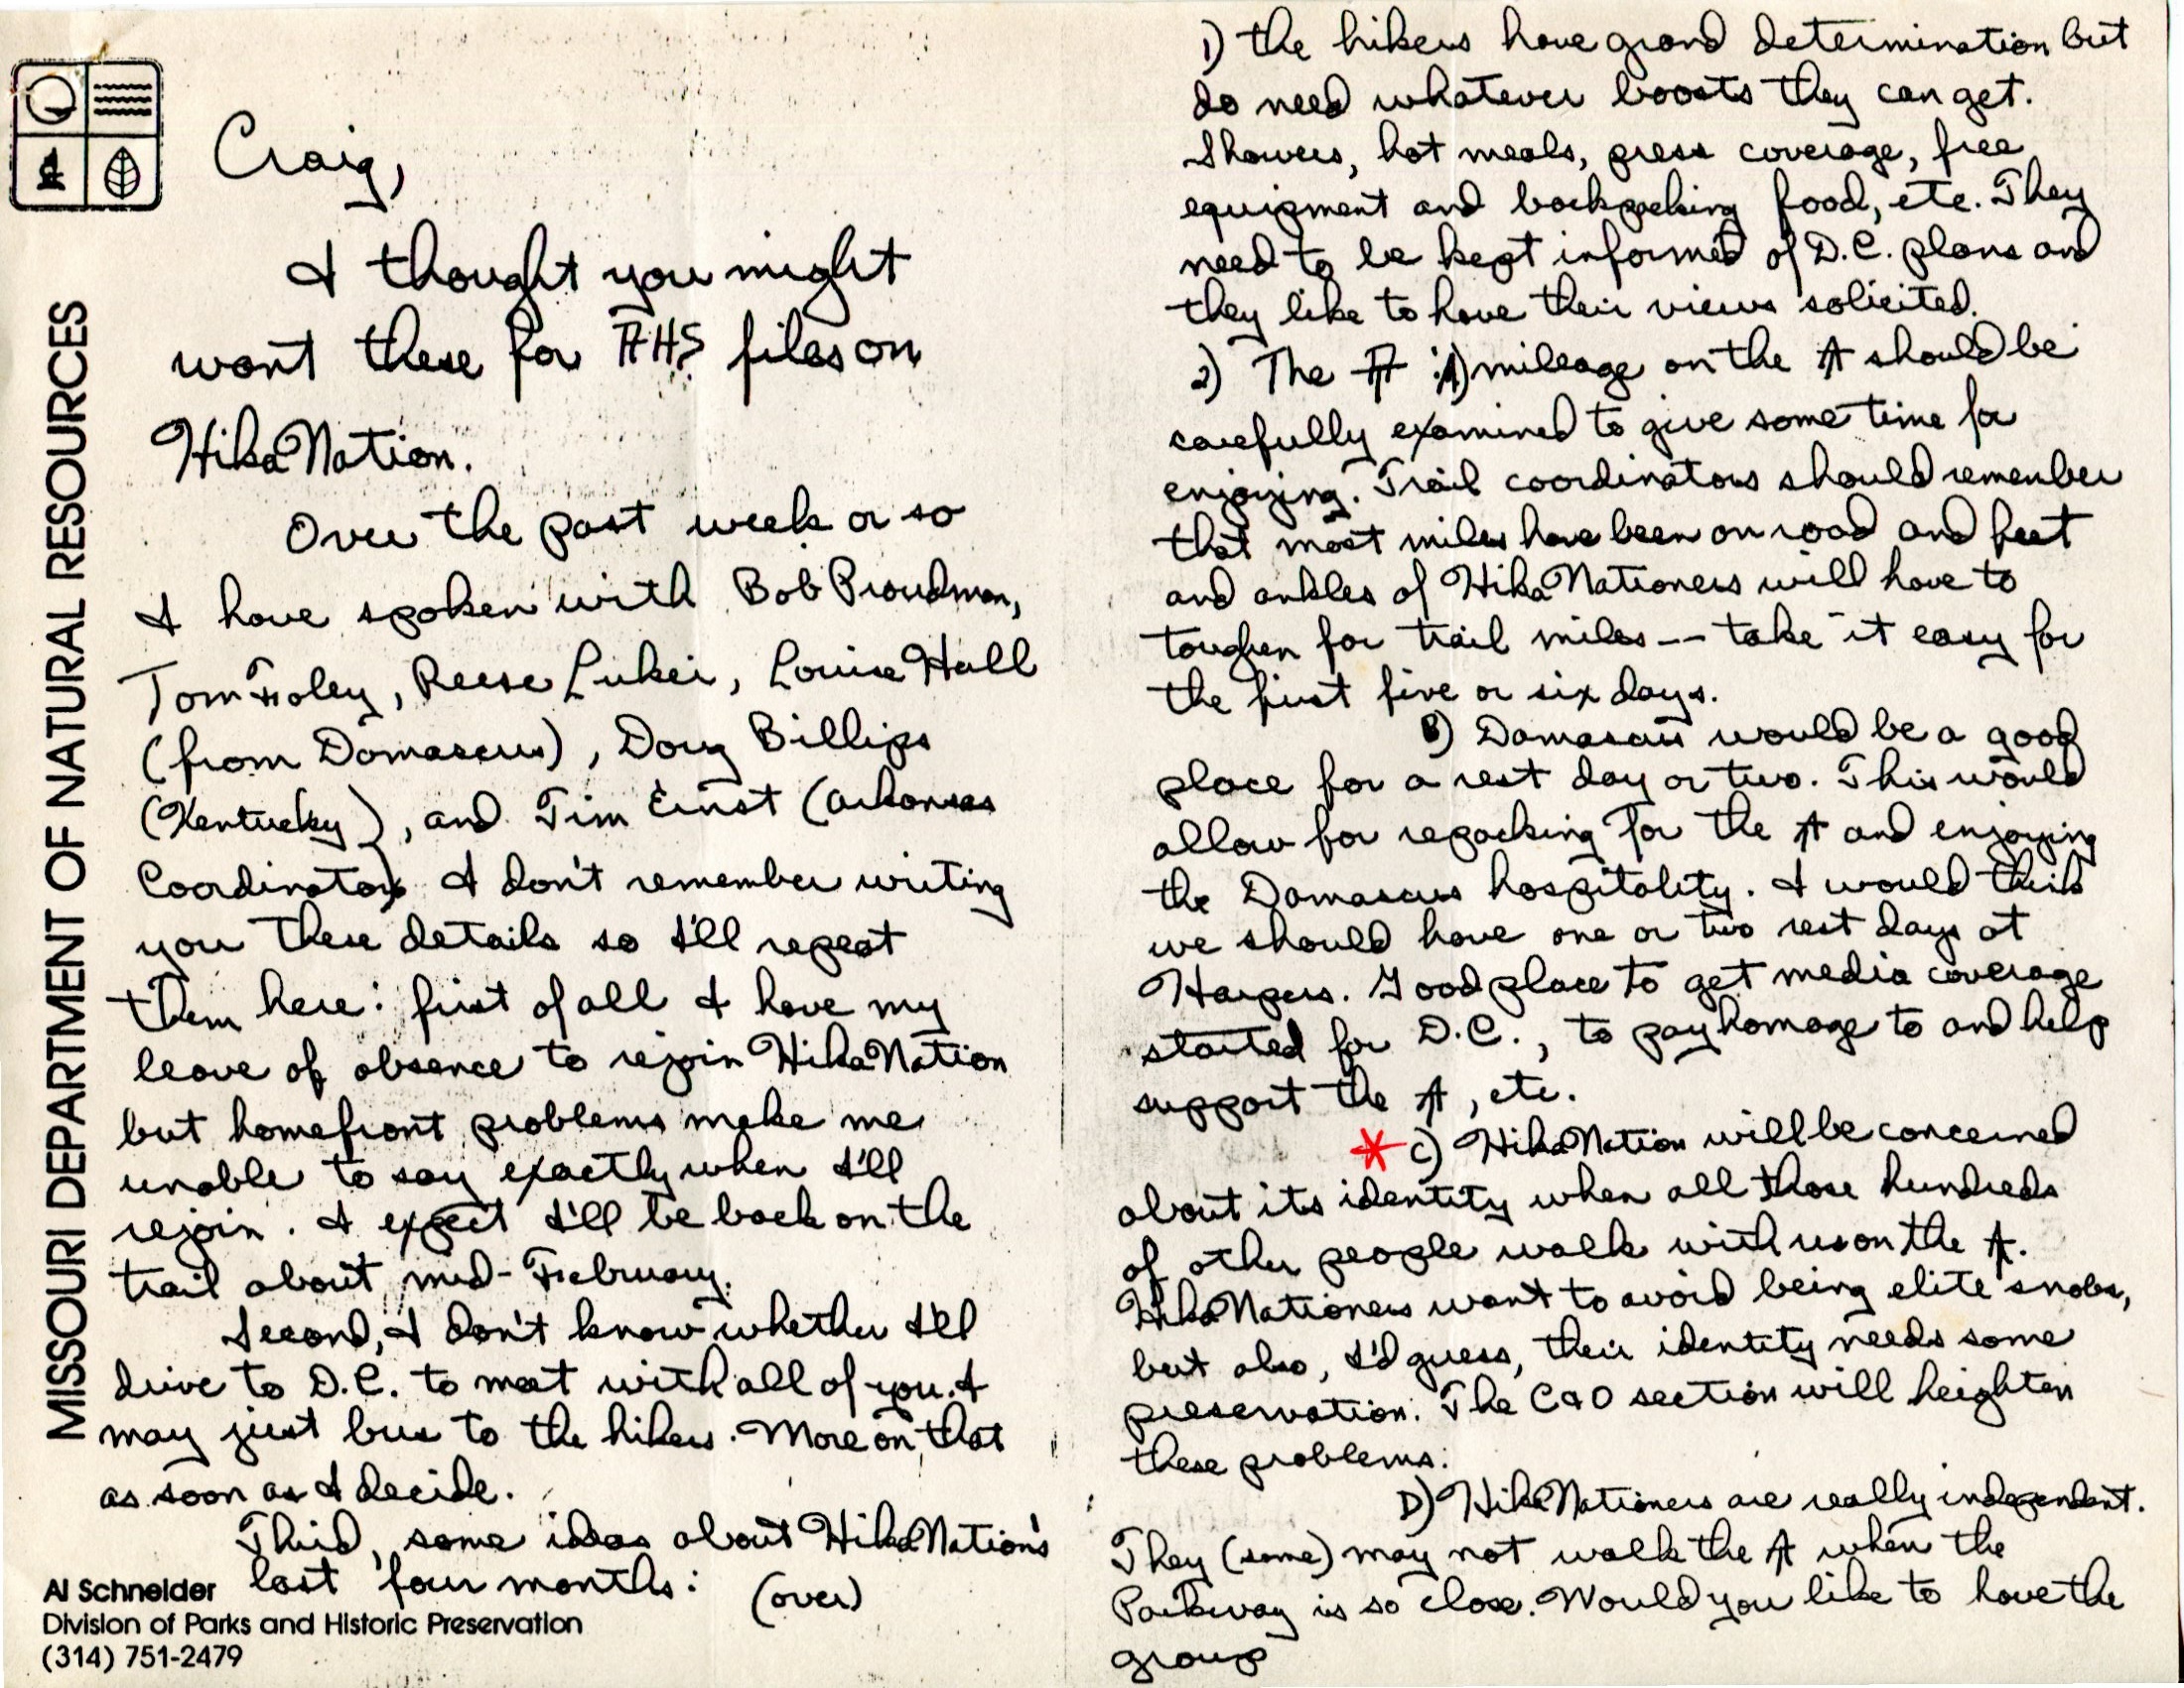 MISSOURI DEPARTMENT OF NATURAL RESOURCES
Craig,
I thought you might
want these for AHS files on
HikaNation.
Over the past week or so
I have spoken with Bob Proudman,
Tom Foley, Reese Lukei, Louise Hall
(from Damascus), Doug Billips
(Kentucky), and Tim Ernst (Arkansas
Coordinator). I don't remember writing
you these details so I'll repeat
them here: first of all I have my
leave of absence to rejoin HikaNation
but homefront problems make me
unable to say exactly when I'll
rejoin. I expect I'll be back on the
trail about mid-February.
Second, I don't know whether I'll
drive to D.C. to meet with all of you. I
may just bus to the hikers. More on that
as soon as I decide.
Third, some ideas about HikaNation's
last four months:
(over)
Al Schneider
Division of Parks and Historic Preservation
(314) 751-2479
1) the hikers have grand determination but
do need whatever boosts they can get.
Showers, hot meals, press coverage, free
equipment and backpacking food, etc. They
need to be kept informed of D.C. plans and
they like to have their views solicited.
2) The AT A) mileage on the AT should be
carefully examined to give some time for
enjoying. Trail coordinators should remember
that most miles have been on road and feet
and ankles of HikaNationers will have to
toughen for trail miles -- take it easy for
the first five or six days.
B) Damascus would be a good
place for a rest day or two. This would
allow for repacking for the AT and enjoying
the Damascus hospitality. I would think
we should have one or two rest days at
Harpers. Good place to get media coverage
started for D.C., to pay homage to and help
support the AT, etc.
* C) HikaNation will be concerned
about its identity when all those hundreds
of other people walk with us on the AT.
HikaNationers want to avoid being elite snobs,
but also, I'd guess, their identity needs some
preservation. The C&O section will heighten
these problems.
D) HikaNationers are really independent.
They (some) may not walk the AT when the
Parkway is so close. Would you like to have the
group